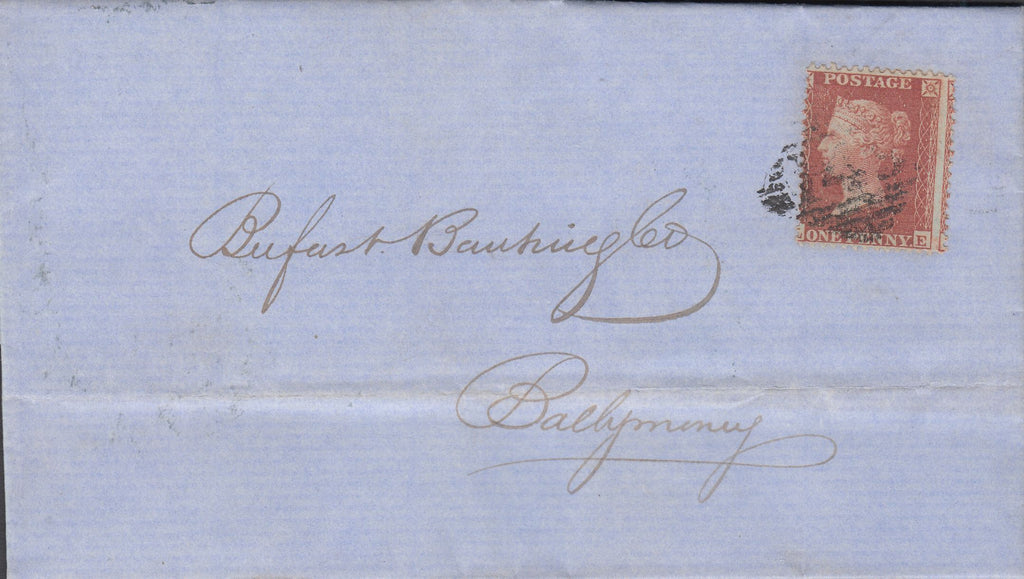 POSTAGE
ONE PENNY E
Belfast Banking Co
Ballymoney